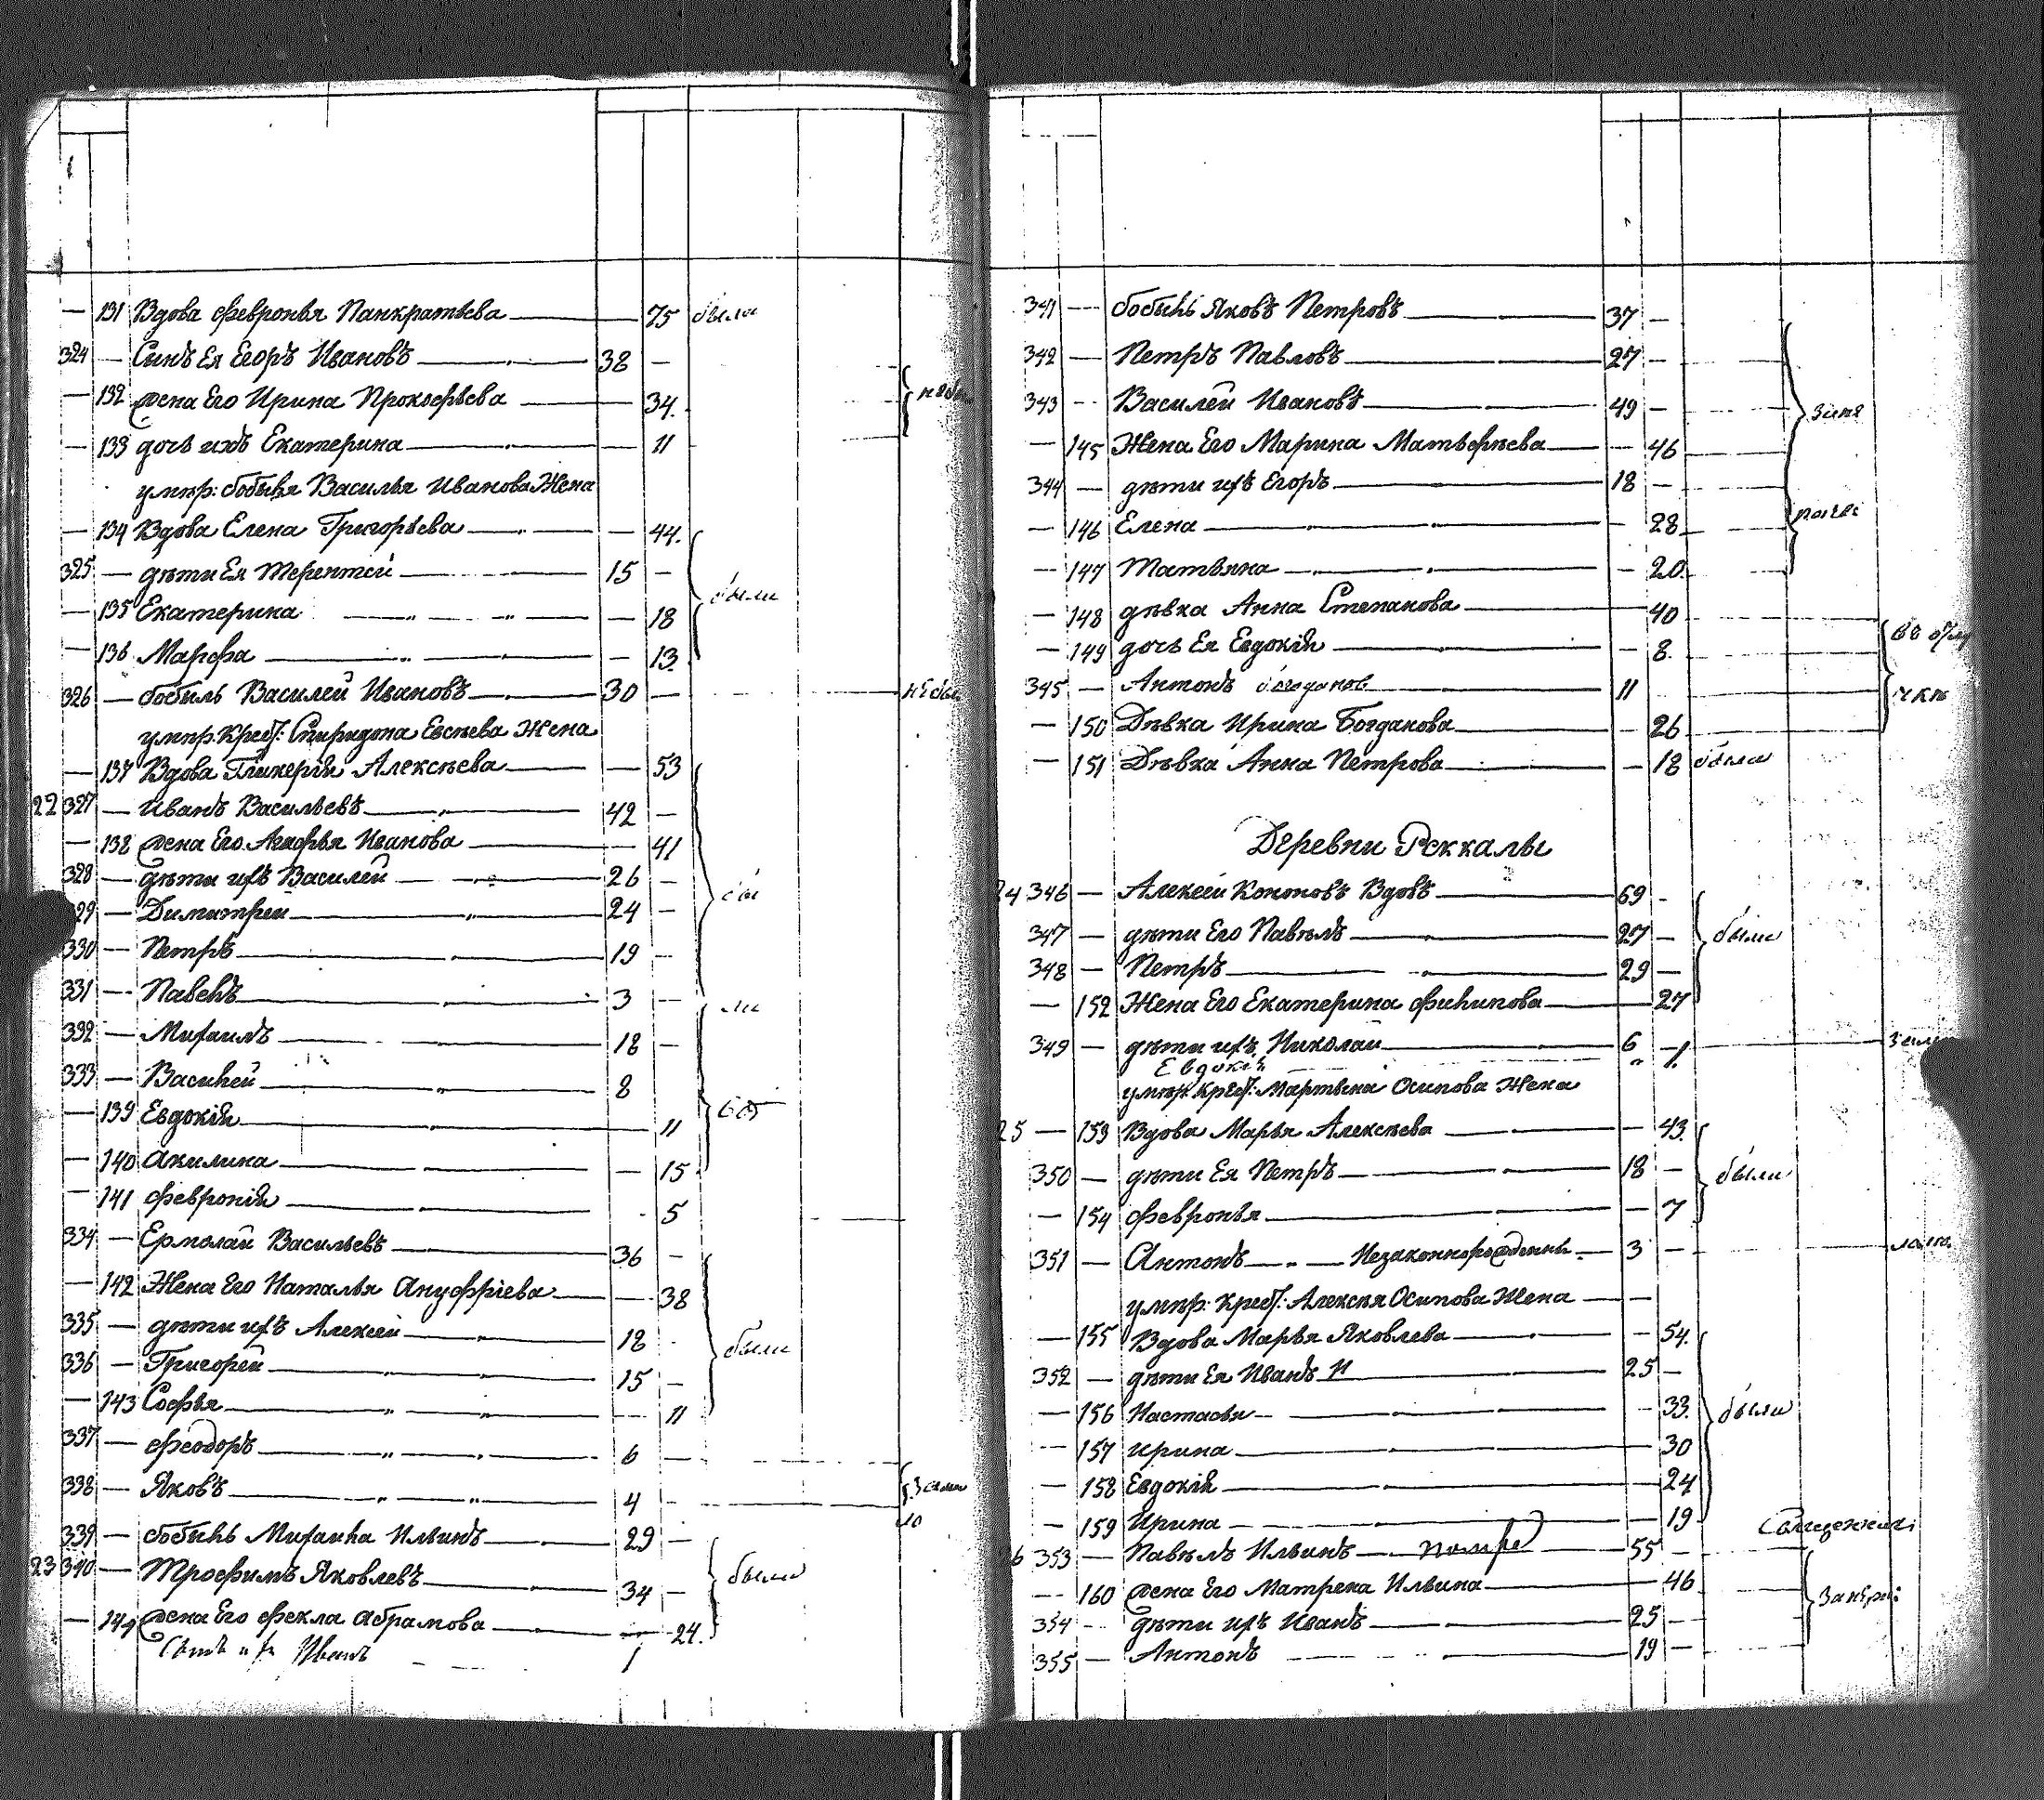 — 131 Вдова Февронья Панкратьева — 75 была
324 — Сынъ Ея Егоръ Ивановъ — 38 —
— 132 жена Его Ирина Прокофьева — 34.
— 133 дочь ихъ Екатерина — 11
умпр: бобыля Василья Иванова Жена
— 134 Вдова Елена Григорьева — 44.
325 — дѣти Ея Терентей — 15 —
были
— 135 Екатерина — 18
— 136 Марфа — 13.
326 — бобыль Василей Ивановъ — 30 —
умпр. Крест: Спиридона Евсѣева Жена
— 137 Вдова Гликерія Алексѣева — 53
22 327 — Иванъ Васильевъ — 42 —
— 138 жена Его Агафья Иванова — 41
328 — дѣти ихъ Василей — 26 —
29 — Димитрей — 24 —
330 — Петръ — 19 —
331 — Павелъ — 3 —
332 — Михаилъ — 18 —
333 — Василей — 8
— 139 Евдокія — 11
— 140 Акилина — 15
— 141 Февронія — 5
334 — Ермолай Васильевъ — 36 —
— 142 Жена Его Наталья Ануфріева — 38
335 — дѣти ихъ Алексей — 18 -
были
336 — Григорей — 15 —
— 143 Софья — 11
337 — Феодоръ — 6 —
338 — Яковъ — 4 -
339 — бобыль Михаила Ильинъ — 29 —
23 340 — Трофимъ Яковлевъ — 34 —
были
— 144 жена Его Фекла Абрамова — 24.
Сынъ их Иванъ — 1
341 — бобыль Яковъ Петровъ — 37 —
342 — Петръ Павловъ — 27 —
343 — Василей Ивановъ — 49 —
— 145 Жена Его Марина Матьфѣева — 46
344 — дѣти ихъ Егоръ — 18 —
— 146 Елена — 28
— 147 Татьяна — 20.
— 148 дѣвка Анна Степанова — 40
— 149 дочь Ея Евдокія — 8.
345 — Антонъ богданов — 11
— 150 Дѣвка Ирина Богданова — 26
— 151 Дѣвка Анна Петрова — 18 была
Деревни Реккалы
24 346 — Алексей Кононовъ Вдовъ — 69 -
347 — дѣти Его Павѣлъ — 27 —
были
348 — Петръ — 29 —
— 152 Жена Его Екатерина Филипова — 27
349 — дѣти ихъ Николай — 6 —
Евдокія " 1.
умпр. Крест: Мартына Осипова Жена
25 — 153 Вдова Марья Алексѣева — 43.
350 — дѣти Ея Петръ — 18 —
были
— 154 Февронья — 7
351 — Антонъ — Незаконнорожденн — 3 —
умпр: Крест: Алексѣя Осипова Жена —
— 155 Вдова Марья Яковлева — 54.
352 — дѣти Ея Иванъ И — 25 —
— 156 Настасья — 33.
были
— 157 Ирина — 30
— 158 Евдокія — 24
— 159 Ирина — 19
26 353 — Павѣлъ Ильинъ — помре — 55 —
— 160 жена Его Матрена Ильина — 46
354 — дѣти ихъ Иванъ — 25 —
355 — Антонъ — 19 —